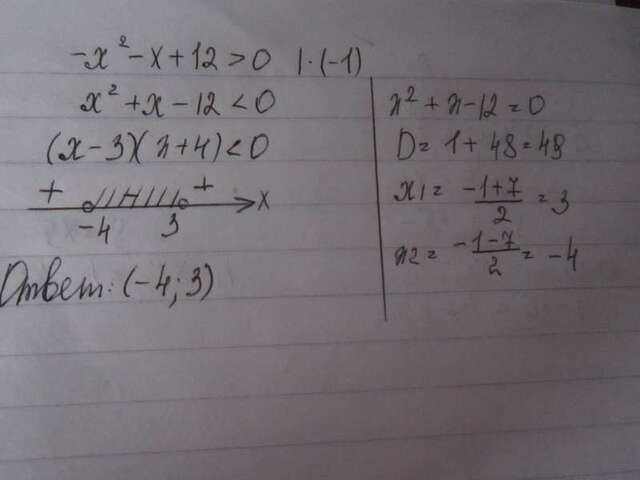 -x² - x + 12 > 0 | · (-1)
x² + x - 12 < 0
(x - 3)(x + 4) < 0
+ - +
-4 3 x
Ответ: (-4; 3)
x² + x - 12 = 0
D = 1 + 48 = 49
x1 = (-1+7)/2 = 3
x2 = (-1-7)/2 = -4